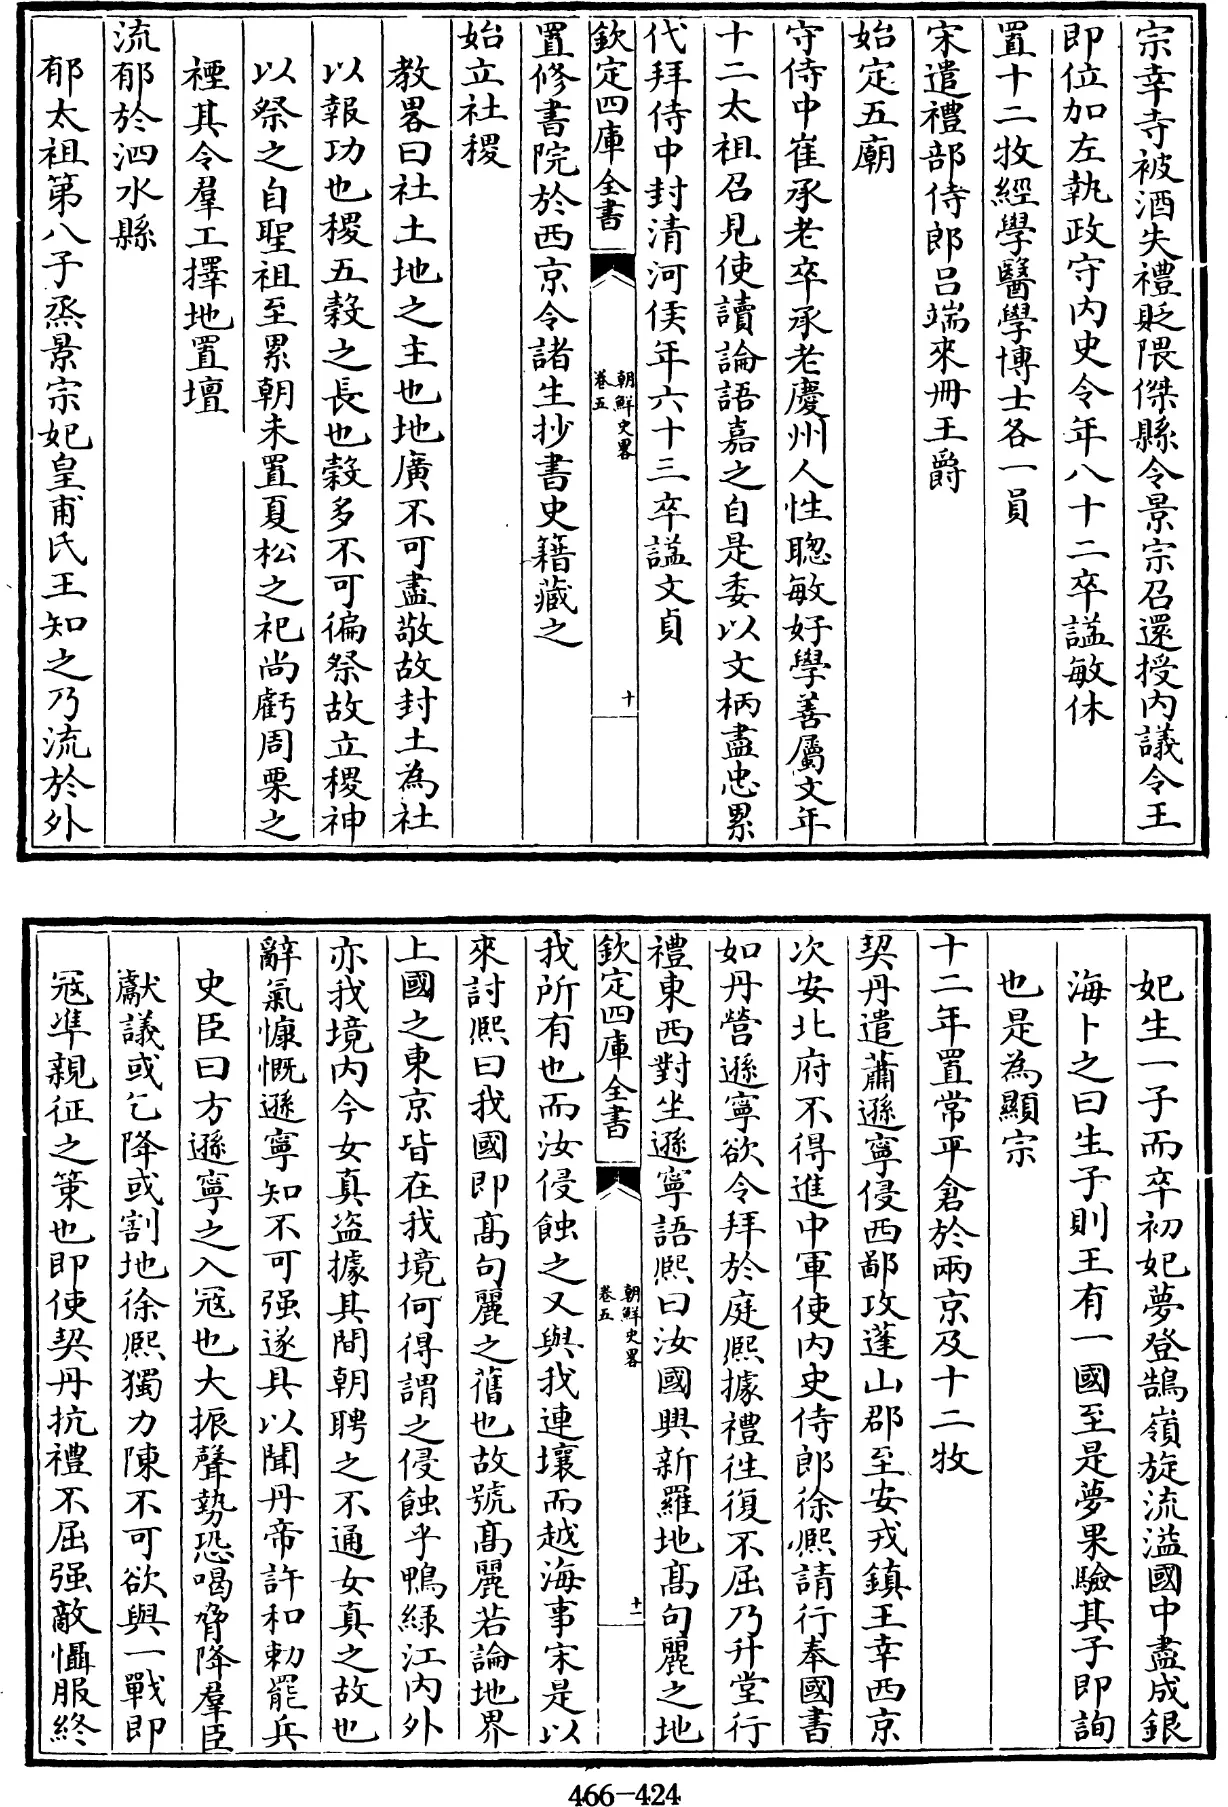 宗幸寺被酒失禮貶隈傑縣令景宗召還授内議令王
即位加左執政守内史令年八十二卒諡敏休
置十二牧經學醫學博士各一員
宋遣禮部侍郎呂端來冊王爵
始定五廟
守侍中崔承老卒承老慶州人性聰敏好學善屬文年
十二太祖召見使讀論語嘉之自是委以文柄盡忠累
代拜侍中封清河侯年六十三卒諡文貞
欽定四庫全書
朝鮮史畧
卷五
十
置修書院於西京令諸生抄書史籍藏之
始立社稷
教畧曰社土地之主也地廣不可盡敬故封土為社
以報功也稷五穀之長也穀多不可徧祭故立稷神
以祭之自聖祖至累朝未置夏松之祀尚虧周栗之
禋其令羣工擇地置壇
流郁於泗水縣
郁太祖第八子烝景宗妃皇甫氏王知之乃流於外
妃生一子而卒初妃夢登鵠嶺旋流溢國中盡成銀
海卜之曰生子則王有一國至是夢果驗其子即詢
也是為顯宗
十二年置常平倉於兩京及十二牧
契丹遣蕭遜寧侵西鄙攻蓬山郡至安戎鎮王幸西京
次安北府不得進中軍使内史侍郎徐熙請行奉國書
如丹營遜寧欲令拜於庭熙據禮徃復不屈乃升堂行
禮東西對坐遜寧語熙曰汝國興新羅地髙句麗之地
欽定四庫全書
朝鮮史畧
卷五
十一
我所有也而汝侵蝕之又與我連壤而越海事宋是以
來討熙曰我國即髙句麗之舊也故號髙麗若論地界
上國之東京皆在我境何得謂之侵蝕乎鴨緑江内外
亦我境内今女真盗據其間朝聘之不通女真之故也
辭氣慷慨遜寧知不可强遂具以聞丹帝許和勅罷兵
史臣曰方遜寧之入冦也大振聲勢恐喝脅降羣臣
獻議或乞降或割地徐熙獨力陳不可欲與一戰即
冦凖親征之策也即使契丹抗禮不屈强敵懾服終
466-424